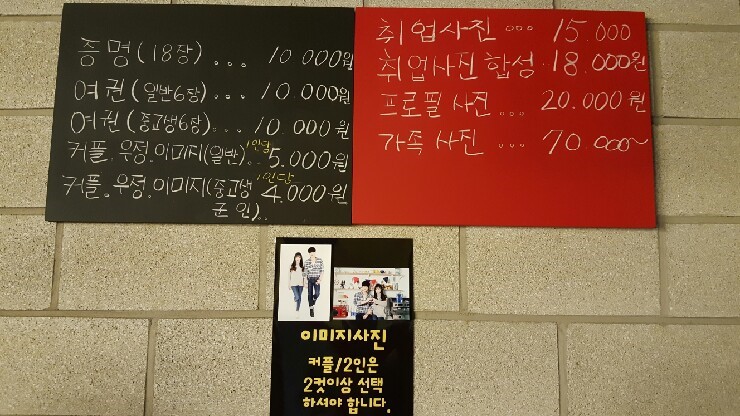 증명(18장)... 10.000원
여권(일반6장)... 10.000원
여권(중고생6장)... 10.000원
커플.우정.이미지(일반)..1인당 5.000원
커플.우정.이미지(중고생 1인당 4.000원
군인)..
취업사진 ... 15.000
취업사진 합성. 18.000원
프로필 사진... 20.000원
가족 사진 ... 70.000~
이미지사진
커플/2인은
2컷이상 선택
하셔야 합니다.